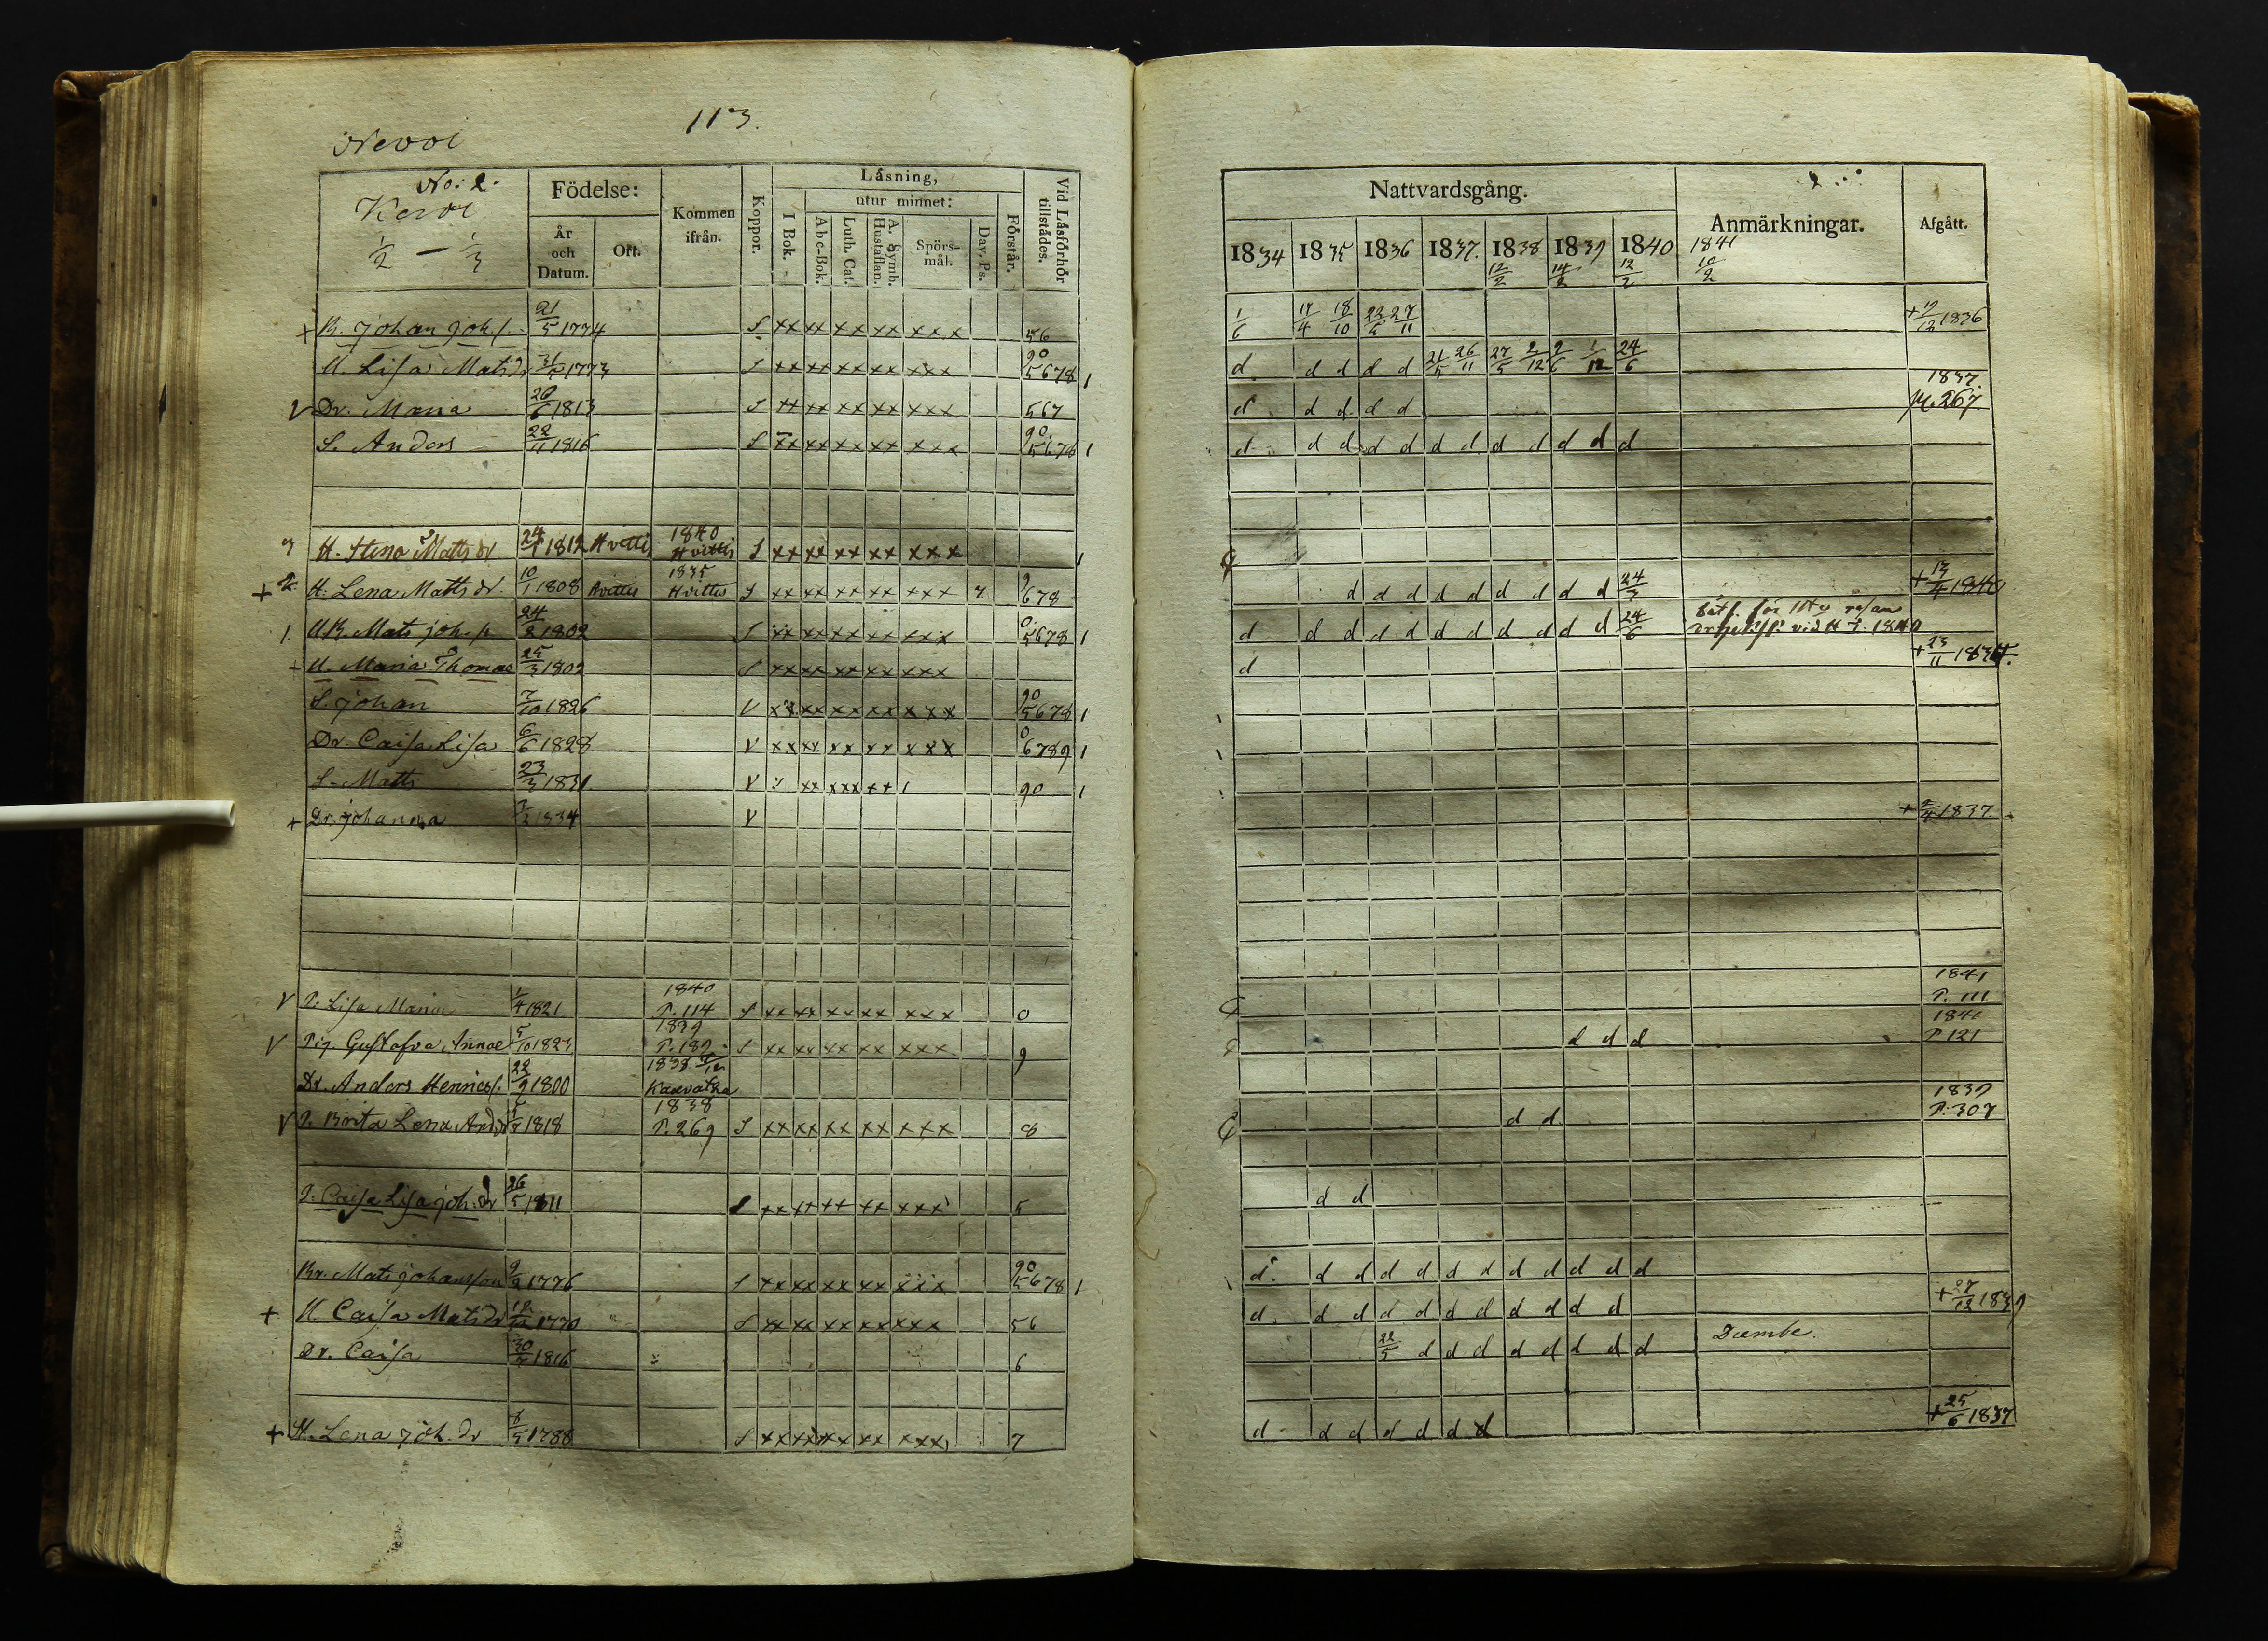 113.
Nevoi
No: 2.
Kervi
1/2 — 1/3
Födelse:
År och Datum.
Ort.
Kommen ifrån.
Koppor.
Läsning,
I Bok.
utur minnet:
Abc-Bok.
Luth. Cat.
A. Symb. Hustaflan.
Spörsmål.
Dav. Ps.
Förstår.
Vid Läsförhör tillstädes.
+ B. Johan Joh.s. 21/5 1774 S xx xx xx xx xxx 56
U. Lisa Matsdr 31/5 1773 S xx xx xx xx xxx 90 5678 1
V Dr. Maria 26/6 1813 S xx xx xx xx xxx 567
S. Anders 22/11 1816 S xx xx xx xx xxx 90 5678 1
3 H. Stina Mattsdr 24/1 1812 Hvittis 1840 Hvittis S xx xx xx xx xxx 1
+ 2. H. Lena Matts dr. 10/1 1808 Hvittis 1835 Hvittis S xx xx xx xx xxx 7. 9 678
1. UB. Mats joh. s. 24/2 1802 S xx xx xx xx xxx 0 5678 1
+ U. Maria Thomae 25/3 1802 S xx xx xx xx xxx
S. Johan 7/10 1826 V xx xx xx xx xxx 90 5678 1
Dr. Caisa Lisa 6/6 1828 V xx xx xx xx xxx 0 6789 1
S. Matts 23/3 1831 V xx xxx xx 90 1
+ Dr. Johanna 1834 V
V P. Lisa Maria 1/4 1821 1840 P. 114 S xx xx xx xx xxx 0
V Pig. Gustafva Annae 5/10 1823 1839 P. 189 S xx xx xx xx xxx 9
Dr. Anders Henrics. 22/9 1800 1838 Kaavatka
V P. Brita Lena And.dr 1818 1838 P. 269 S xx xx xx xx xxx 8
P. Caisa Lisa joh. dr 26/5 1811 S xx xx xx xx xxx 5
Br. Mats johansson 9/2 1776 S xx xx xx xx xxx 90 5678 1
+ U. Caisa Matsdr 12/12 1770 S xx xx xx xx xxx 56
Dr. Caisa 30/7 1816 6
+ H. Lena joh. dr 8/5 1788 S xx xx xx xx xxx 7
Nattvardsgång.
Anmärkningar.
Afgått.
1834 1835 1836 1837. 1838 1839 1840 1841
12/2 14/2 12/2 10/2
1/6 17/4 18/10 22/5 27/11 + 12/12 1836
d d d d d 21/5 26/11 27/5 2/12 2/6 1/12 24/6
d d d d d 1837. pag. 267.
d d d d d d d d d d d d
d d d d d d d d d 24/3 + 13/4 1840
d d d d d d d d d d d 24/6 vid H. 1840
d + 23/11 1834.
+ 2/4 1837.
1841 P. 111
d d d 1840 P 121
d d 1839 P. 307
d d
d d d d d d d d d d d d
d d d d d d d d d d d + 27/12 1839
22/5 d d d d d d d d Dumbe.
d d d d d d d + 25/6 1837